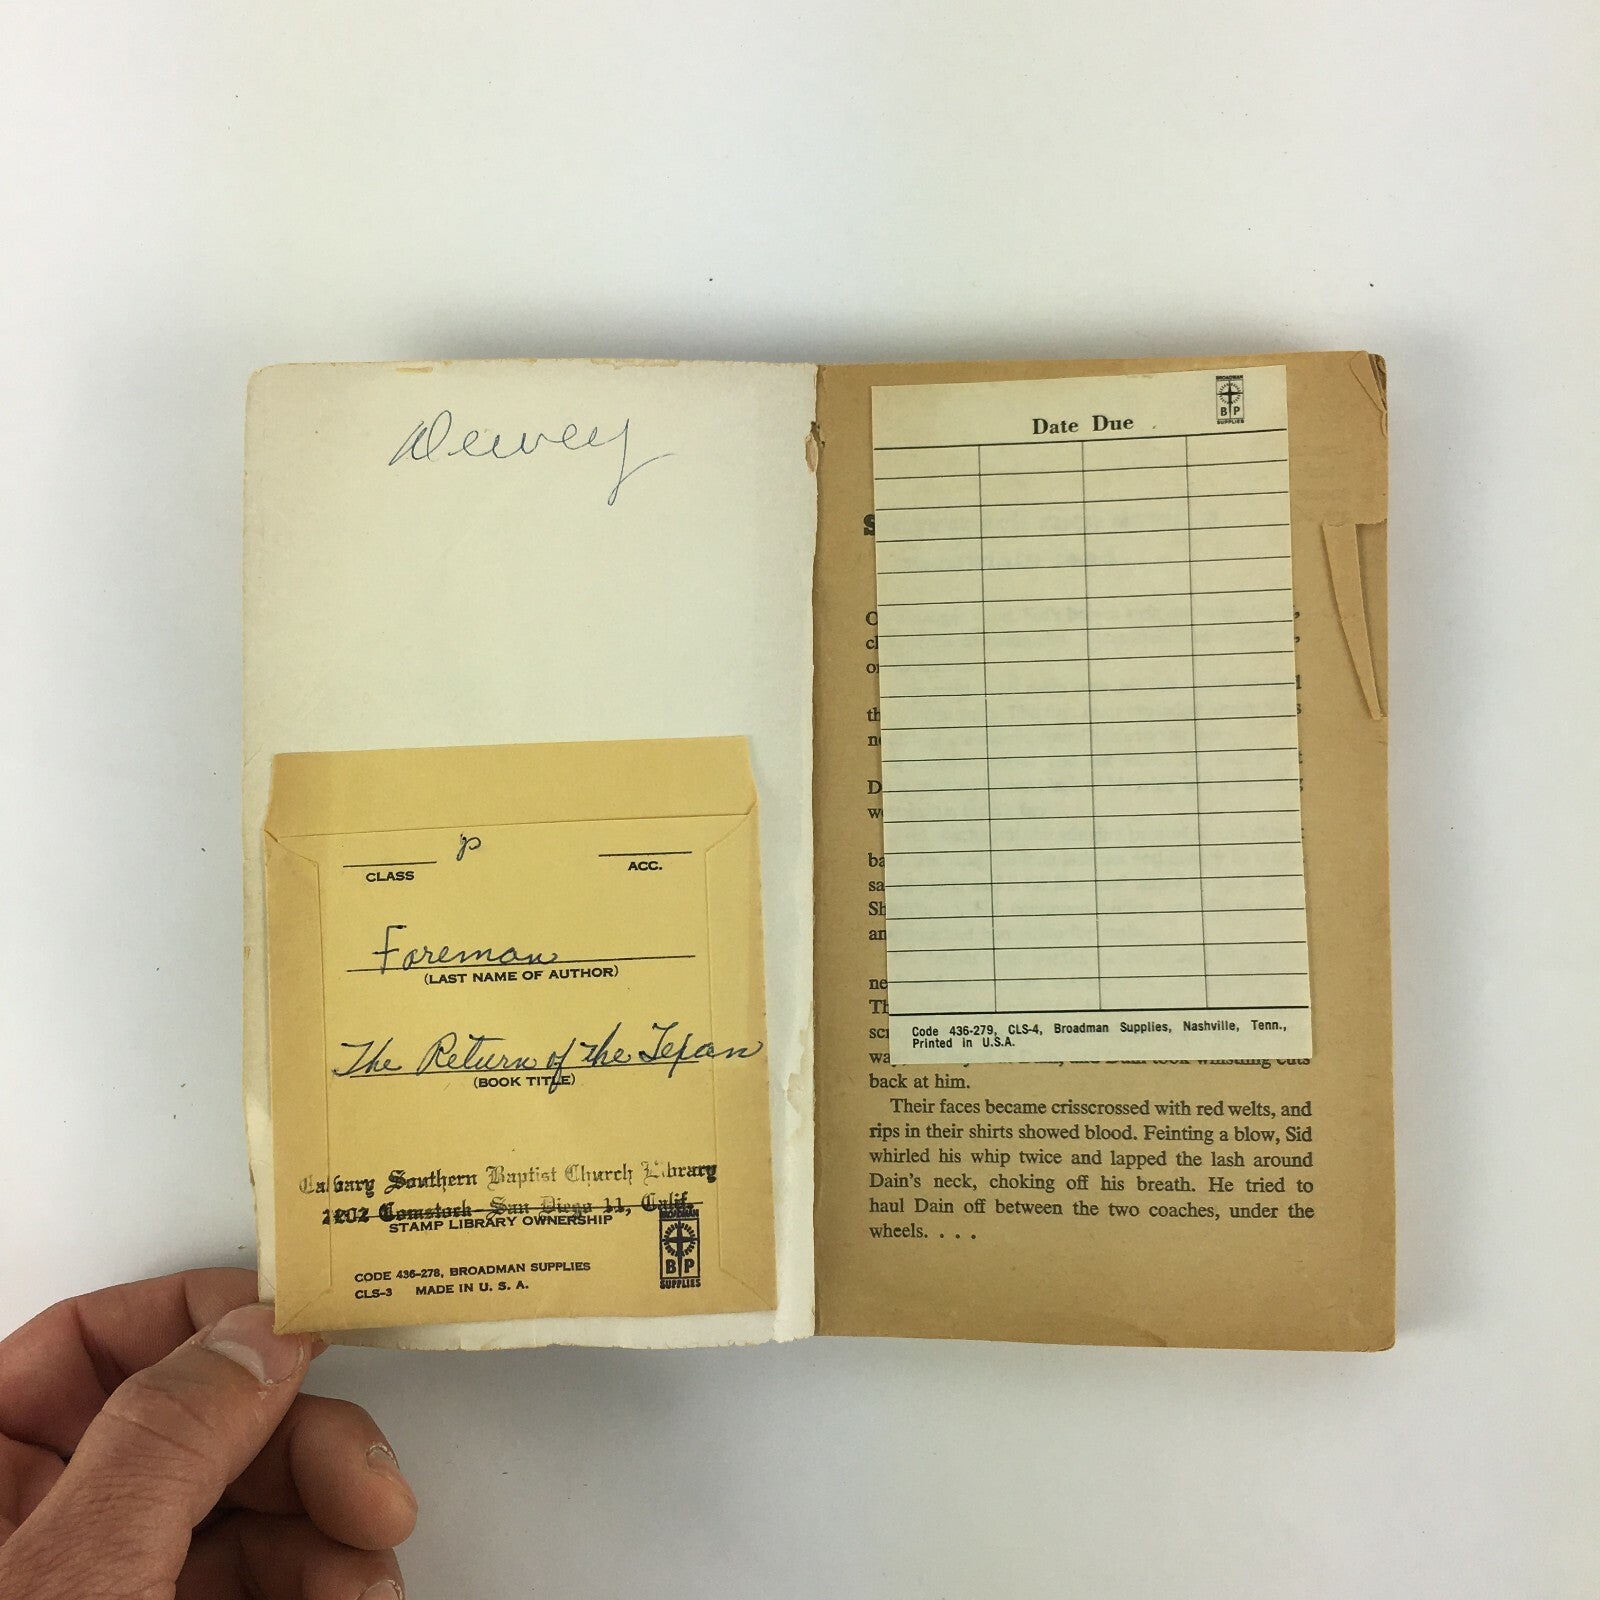 Dewey
p
CLASS ACC.
Foreman
(LAST NAME OF AUTHOR)
The Return of the Texan
(BOOK TITLE)
Calvary Southern Baptist Church Library
Comstock - San Diego 11, Calif.
STAMP LIBRARY OWNERSHIP
CODE 436-278, BROADMAN SUPPLIES
CLS-3 MADE IN U. S. A.
BROADMAN
B P
SUPPLIES
BROADMAN
B P
SUPPLIES
Date Due
Code 436-279, CLS-4, Broadman Supplies, Nashville, Tenn.,
Printed in U.S.A.
back at him.
Their faces became crisscrossed with red welts, and
rips in their shirts showed blood. Feinting a blow, Sid
whirled his whip twice and lapped the lash around
Dain's neck, choking off his breath. He tried to
haul Dain off between the two coaches, under the
wheels. . . .